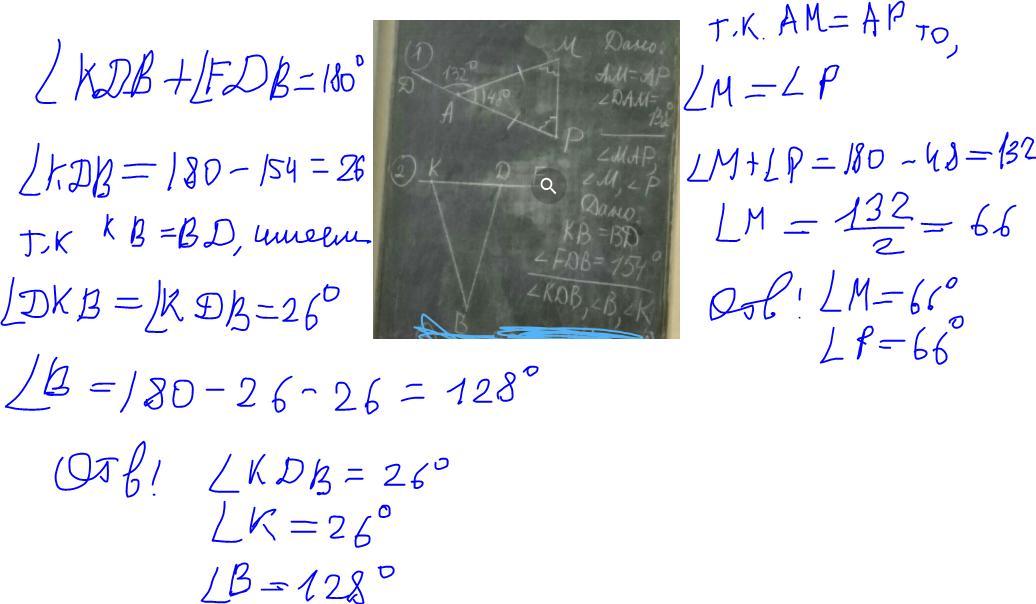 ∠KDB + ∠FDB = 180°
∠KDB = 180 - 154 = 26
т.к КВ = BD, имеем
∠DKB = ∠KDB = 26°
∠B = 180 - 26 - 26 = 128°
Отв! ∠KDB = 26°
∠K = 26°
∠B = 128°
① M
132°
D
A 48°
P
② K D F
B
Дано:
AM = AP
∠DAM =
132°
∠MAP,
∠M, ∠P
Дано:
KB = BD
∠FDB = 154°
∠KDB, ∠B, ∠K
т.к. AM = AP то,
∠M = ∠P
∠M + ∠P = 180 - 48 = 132
∠M = 132/2 = 66
Отв! ∠M = 66°
∠P = 66°